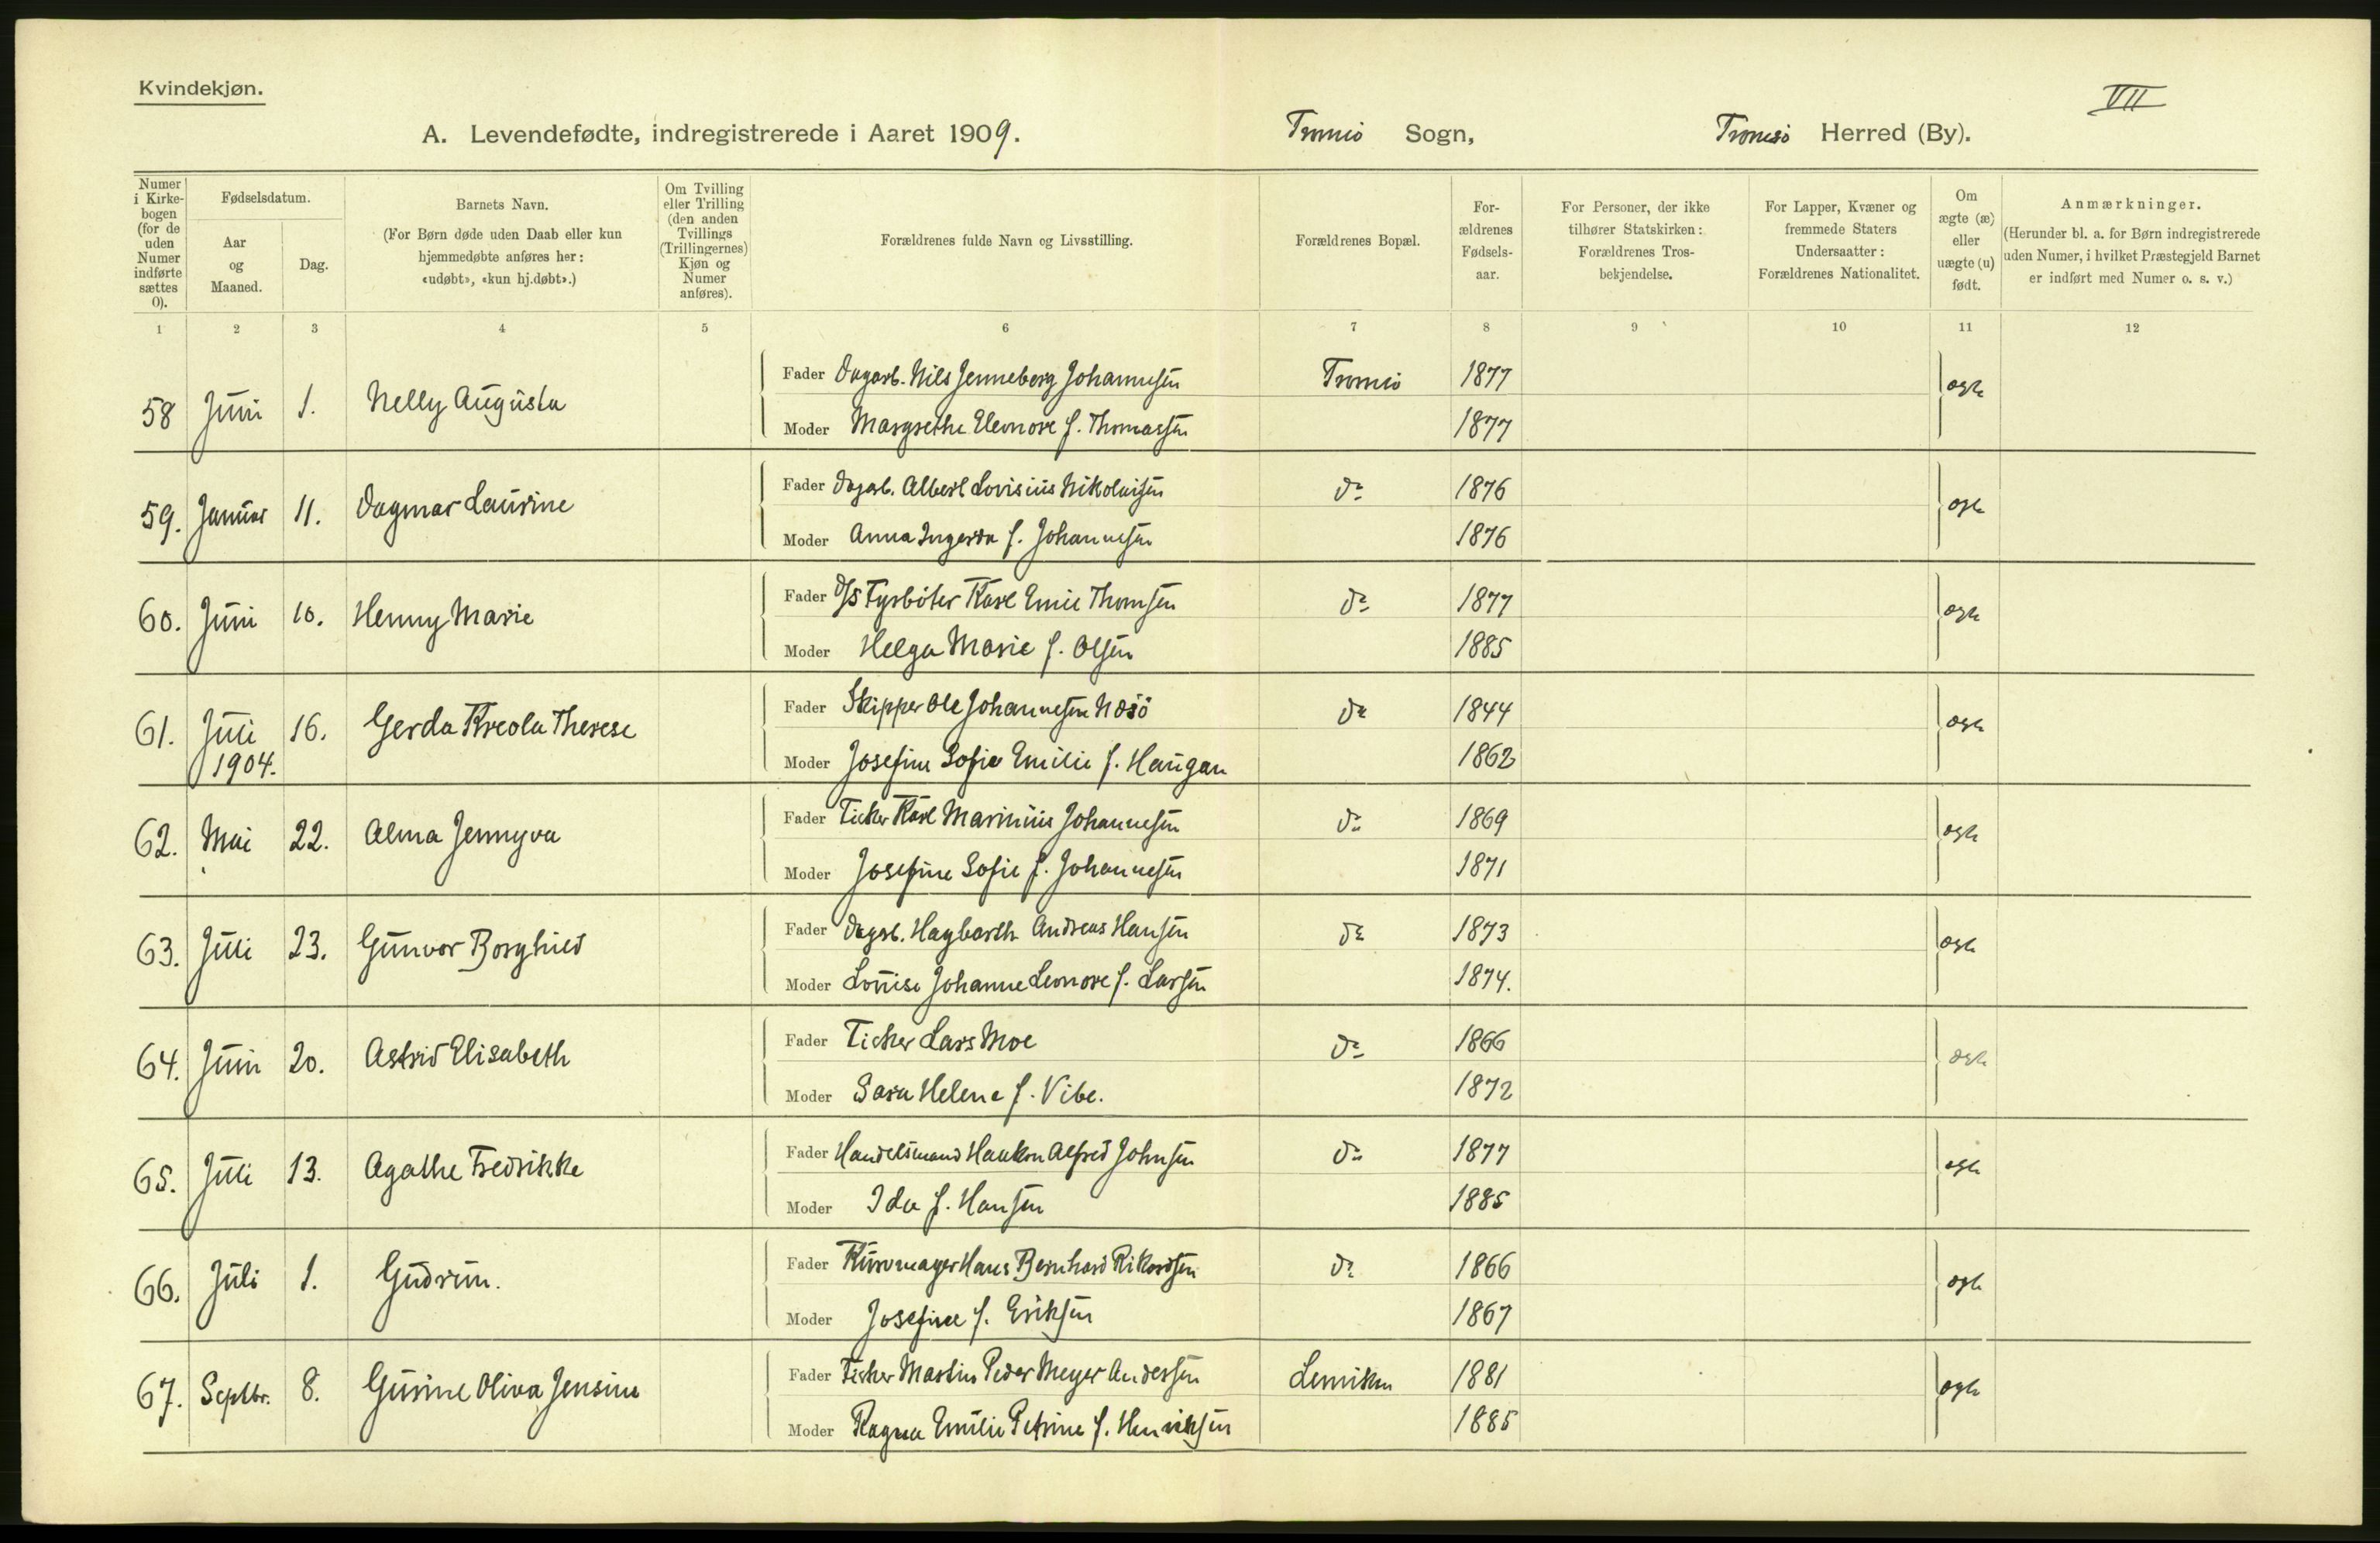 Kvindekjøn.
VII
A. Levendefødte, indregistrerede i Aaret 1909. Tromsø Sogn, Tromsø Herred (By).
Numer i Kirkebogen (for de uden Numer indførte sættes 0).
Fødselsdatum.
Aar og Maaned.
Dag.
Barnets Navn.
(For Børn døde uden Daab eller kun hjemmedøbte anføres her: «udøbt», «kun hj.døbt».)
Om Tvilling eller Trilling (den anden Tvillings (Trillingernes) Kjøn og Numer anføres).
Forældrenes fulde Navn og Livsstilling.
Forældrenes Bopæl.
Forældrenes Fødselsaar.
For Personer, der ikke tilhører Statskirken: Forældrenes Trosbekjendelse.
For Lapper, Kvæner og fremmede Staters Undersaatter: Forældrenes Nationalitet.
Om ægte (æ) eller uægte (u) født.
Anmærkninger.
(Herunder bl. a. for Børn indregistrerede uden Numer, i hvilket Præstegjeld Barnet er indført med Numer o. s. v.)
1 2 3 4 5 6 7 8 9 10 11 12
58 Juni 1. Nelly Augusta Fader Dagarb. Nils Jenneberg Johannesen Tromsø 1877 ægte
Moder Margrethe Elenore f. Thomassen 1877
59. Januar 11. Dagmar Laurine Fader Dagarb. Albert Lovisius Nikolaisen do 1876 ægte
Moder Anna Ingerda f. Johannesen 1876
60. Juni 10. Henny Marie Fader D/S Fyrbøter Karl Emil Thomsen do 1877 ægte
Moder Helga Marie f. Olsen 1885
61. Juli 1904. 16. Gerda Kreola Therese Fader Skipper Ole Johannesen Næsö do 1844 ægte
Moder Josefine Sofie Emilie f. Haugan 1862
62. Mai 22. Alma Jennyva Fader Ficker Karl Marinius Johannesen do 1869 ægte
Moder Josefine Sofie f. Johannesen 1871
63. Juli 23. Gunvor Borghild Fader Dagarb. Hagbarth Andreas Hansen do 1873 ægte
Moder Louise Johanne Leonore f. Larsen 1874.
64. Juni 20. Astrid Elisabeth Fader Ficker Lars Moe do 1866 ægte
Moder Sara Helene f. Vibe. 1872
65. Juli 13. Agathe Fredrikke Fader Handelsmand Haakon Alfred Johnsen do 1877 ægte
Moder Ida f. Hansen 1885
66. Juli 1. Gudrun. Fader Kurvmager Hans Bernhard Rikardsen do 1866 ægte
Moder Josefine f. Eriksen 1867
67. Septbr. 8. Gusine Oliva Jensine Fader Fisker Martin Peder Meyer Andersen Lenviken 1881 ægte
Moder Ragna Emilie Petrine f. Henriksen 1885